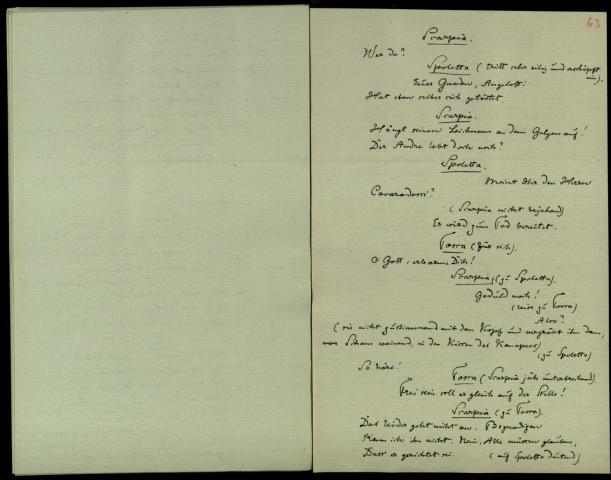 63
Scarpia.
Wer da?
Spoletta (tritt sehr eilig und erschöpft
ein).
Euer Gnaden, Angelotti
Hat eben selber sich getödtet.
Scarpia.
Hängt seinen Leichnam an dem Galgen auf!
Der Andre lebt doch noch?
Spoletta.
Meint Ihr den Herrn
Cavaradossi?
(Scarpia nickt bejahend)
Er wird zum Tod bereitet.
Tosca (für sich).
O Gott, erbarme Dich!
Scarpia, (zu Spoletta).
Geduld noch!
(leise zu Tosca)
Also?
(sie nickt zustimmend mit dem Kopf und vergräbt ihn dann,
vor Scham weinend, in den Kissen des Kanapees)
(zu Spoletta)
So höre!
Tosca (Scarpia jäh unterbrechend).
Frei sein soll er gleich auf der Stelle!
Scarpia (zu Tosca).
Das leider geht nicht an. Begnadigen
Kann ich ihn nicht. Nein, Alle müssen glauben,
Dass er gerichtet sei. (auf Spoletta deutend)